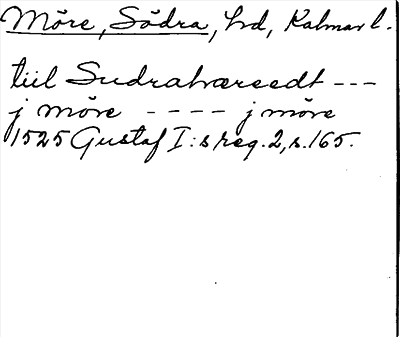 Möre, Södra, hd, Kalmar l.
tiil Sudrahæreedt ---
j möre ---- j möre
1525 Gustaf I:s reg. 2, s. 165.